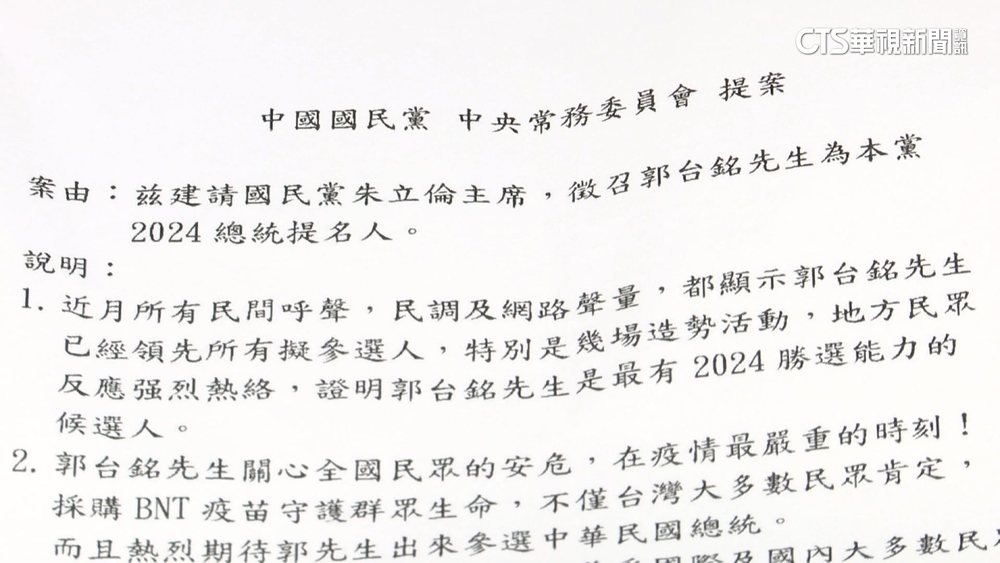 CTS華視新聞資訊
中國國民黨 中央常務委員會 提案
案由：茲建請國民黨朱立倫主席，徵召郭台銘先生為本黨
2024總統提名人。
說明：
1. 近月所有民間呼聲，民調及網路聲量，都顯示郭台銘先生
已經領先所有擬參選人，特別是幾場造勢活動，地方民眾
反應强烈熱絡，證明郭台銘先生是最有2024勝選能力的
候選人。
2. 郭台銘先生關心全國民眾的安危，在疫情最嚴重的時刻！
採購BNT疫苗守護群眾生命，不僅台灣大多數民眾肯定，
而且熱烈期待郭先生出來參選中華民國總統。
國際及國內大多數民眾